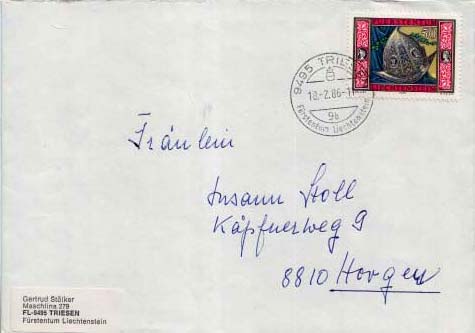 FÜRSTENTUM
50
LIECHTENSTEIN
9495 TRIESEN
18.-2.86-11
9b
Fürstentum Liechtenstein
Fräulein
Susann Stoll
Käpfnerweg 9
8810 Horgen
Gertrud Stälker
Maschlina 279
FL-9495 TRIESEN
Fürstentum Liechtenstein